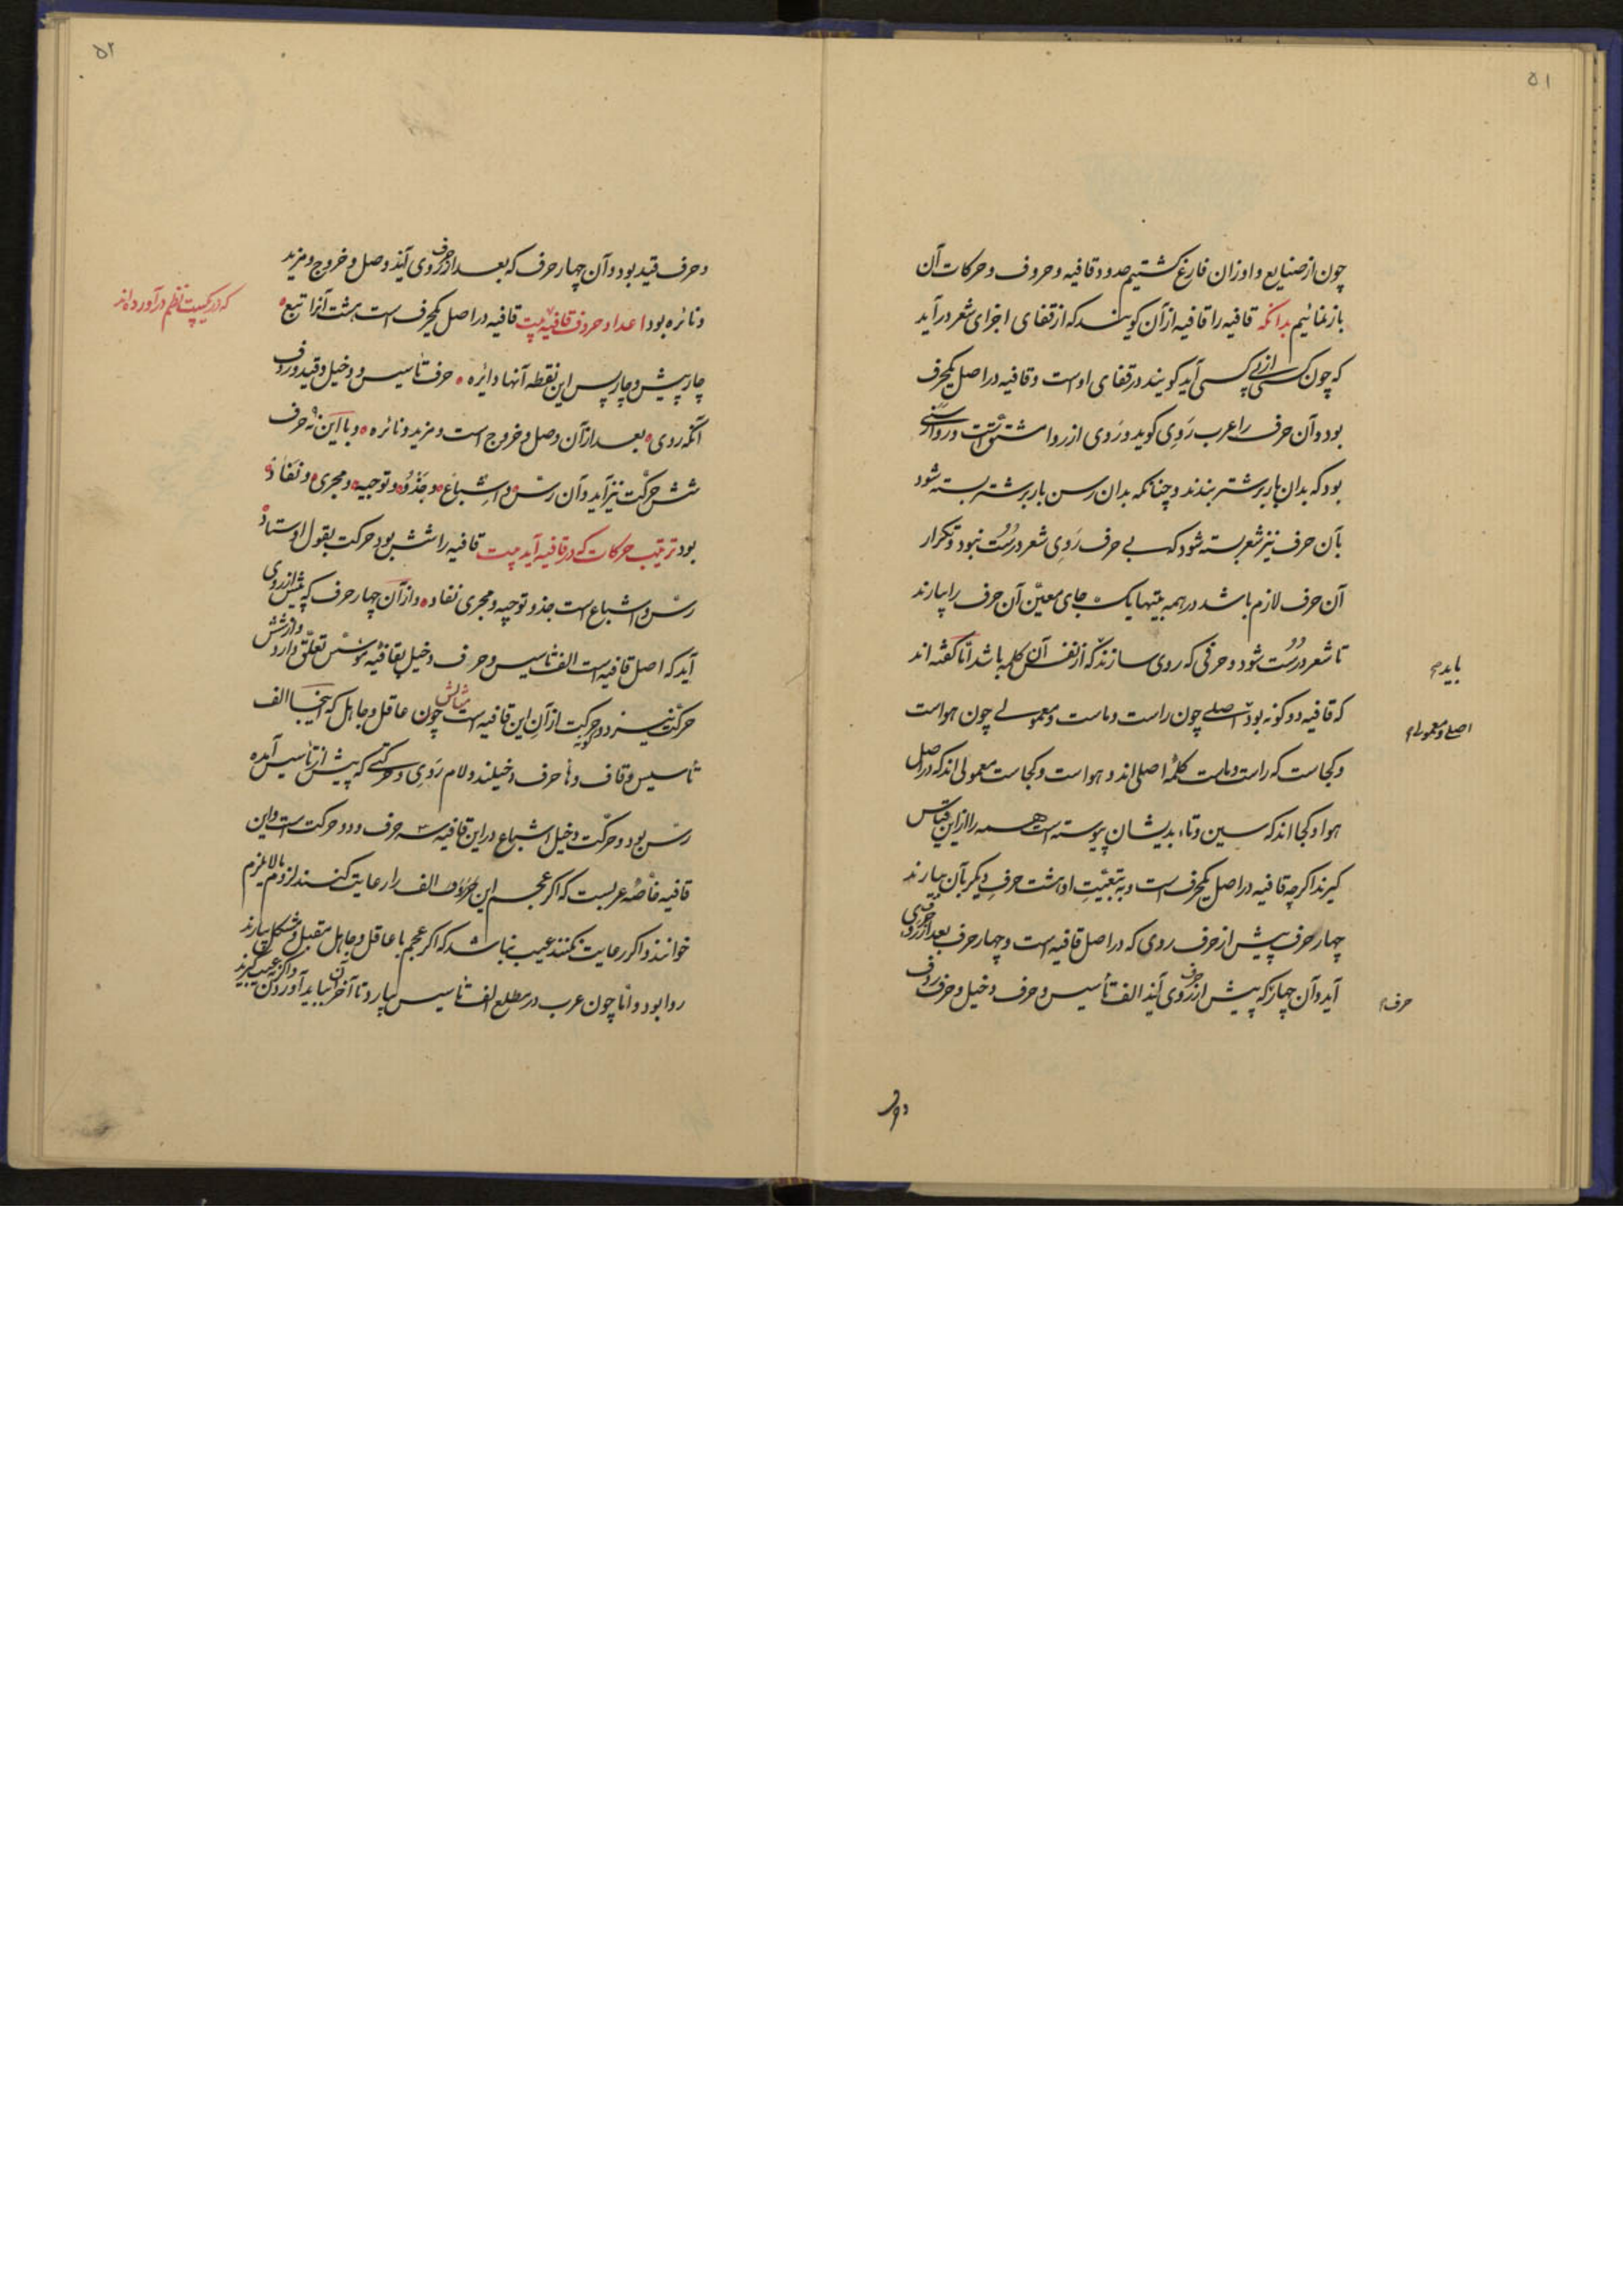 ۵۱
چون از صنایع و اوزان فارغ گشتیم حدود قافیه و حروف و حرکات آن
باز نمائیم بدانکه قافیه را قافیه از آن کویند که از قفای اجزای شعر درآید
که چون کسی از پی کسی آید کویند در قفای اوست و قافیه در اصل یکحرف
بود و آن حرف را عرب رَوِی کوید و رَوی از روا مشتق است و روا رسنی
بود که بدان بار بر شتر بندند و چنانکه بدان رسن بار بر شتر بسته شود
بآن حرف نیز شعر بسته شود که بی حرف رَوِی شعر درُست نبود و تکرار
آن حرف لازم باشد در همه بیتها یک جای معیّن آن حرف را بیارند
تا شعر درُست شود و حرفی که روی سازند که از نفس آن کلمه باشد امّا کفته اند
باید
که قافیه دو کونه بود اصلی چون راست و ماست و معمولی چون هواست
اصلی و معمولی
و کجاست که راست و ماست کلمهٔ اصلی اند و هواست و کجاست معمولی اند که در اصل
هوا و کجا اند که سین و تاء بدیشان پیوسته است همه را از این قیاس
کیرند اکرچه قافیه در اصل یکحرف است و به تبعیّتِ او هشت حرفِ دیکر بآن بیارند
چهار حرف پیش از حرف روی که در اصل قافیه است و چهار حرف بعد از حرف روی
آید و آن چهار که پیش از حرف روی آیند الف تأسیس و حرف دخیل و حرف ردف
حرف
و حرف
۵۲
و حرف قید بود و آن چهار حرف که بعد از حرف روی آیند وصل و خروج و مزید
و نائره بود اعداد حروف قافیه بیت قافیه در اصل یکحرف است هشت آنرا تبع
که در یک بیت نظم درآورده اند
چار پیش و چار پس این نقطه آنها دائره حرف تأسیس و دخیل و قید و ردف
آنکه روی بعد از آن وصل و خروج است و مزید و نائره و با این نُه حرف
شش حرکت نیز آید و آن رسّ و اشباع و حَذْو و توجیه و مجری و نَفَاذ
بود ترتیب حرکات که در قافیه آید بیت قافیه را شش بود حرکت بقول اوستاد
رسّ و اشباع است حذو توجیه و مجری نفاد و از آن چهار حرف که پیش از روی
آید که اصل قافیه است الف تأسیس و حرف دخیل بقافیه مؤسّس تعلّق دارد و از شش
حرکت نیز دو حرکت از آنِ این قافیه است مثالش چون عاقل و جاهل که اینجا الف
تأسیس و قاف و ها حرف دخیلند و لام رَوِی و حرکتی که پیش از تأسیس آمده
رسّ بود و حرکت دخیل اشباع در این قافیه سه حرف و دو حرکت است و این
قافیه خاصّهٔ عربست که اکر عجم این حروف الف را رعایت کنند لزوم مالایلزم
خوانند و اکر رعایت نکنند عیب نباشد که اکر عجم با عاقل و جاهل مقبل و مشکل بیارند
روا بود و امّا چون عرب در مطلع الف تأسیس بیارد تا آخر آن بباید آوردن و اکر نه عیب کیرند